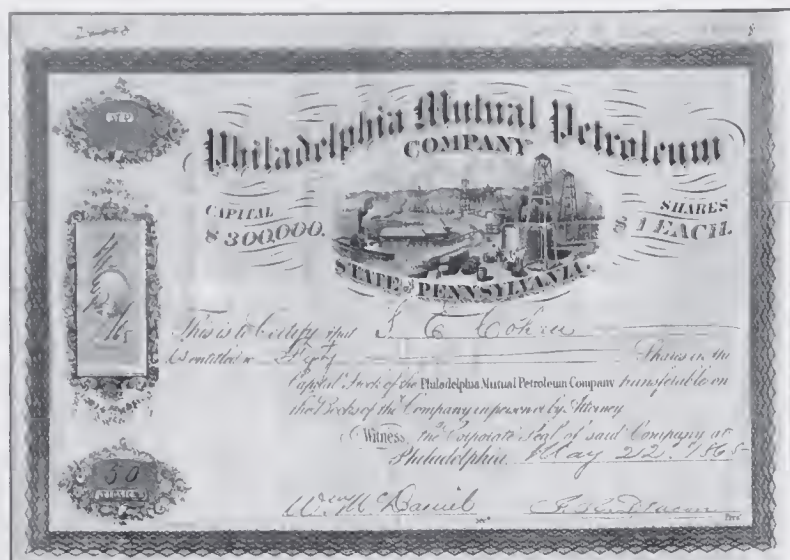 Philadelphia Mutual Petroleum
COMPANY
CAPITAL
$ 300,000.
SHARES
$ 1 EACH.
STATE OF PENNSYLVANIA.
This is to Certify that
is entitled to Fifty Shares in the
Capital Stock of the Philadelphia Mutual Petroleum Company transferable on
the Books of the Company in person or by Attorney
Witness, the Corporate Seal of said Company at
Philadelphia, May 22d 1865
50
Wm McDaniel
Secy
Prest